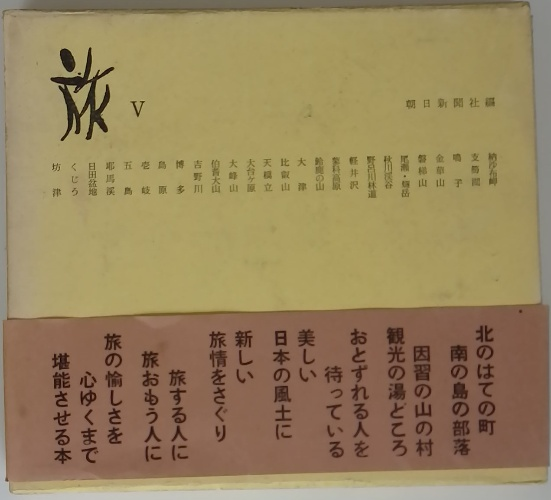 旅 V
朝日新聞社編
納沙布岬
支笏湖
鳴子
金華山
磐梯山
尾瀬・燧岳
秋川渓谷
野呂川林道
軽井沢
蓼科高原
鈴鹿の山
大津
比叡山
天橋立
大台ケ原
大峰山
伯耆大山
吉野川
博多
島原
壱岐
五島
耶馬渓
日田盆地
くじう
坊津
北のはての町
南の島の部落
因習の山の村
観光の湯どころ
おとずれる人を
待っている
美しい
日本の風土に
新しい
旅情をさぐり
旅する人に
旅おもう人に
旅の愉しさを
心ゆくまで
堪能させる本